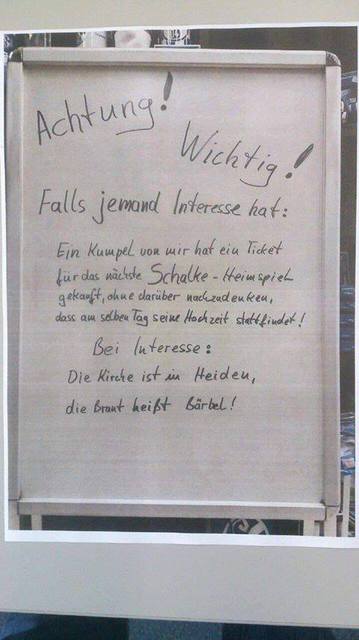 Achtung!
Wichtig!
Falls jemand Interesse hat:
Ein Kumpel von mir hat ein Ticket
für das nächste Schalke-Heimspiel
gekauft, ohne darüber nachzudenken,
dass am selben Tag seine Hochzeit stattfindet!
Bei Interesse:
Die Kirche ist in Heiden,
die Braut heißt Bärbel!